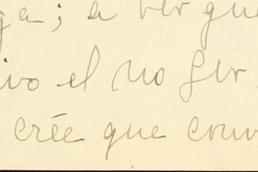 ga; a ver que
ivo el no ser
crée que conv